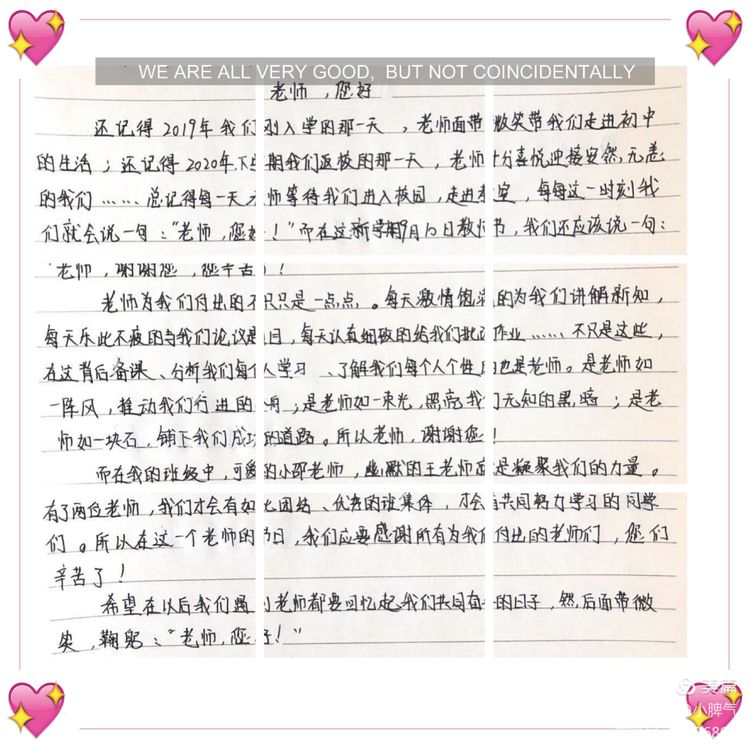 WE ARE ALL VERY GOOD, BUT NOT COINCIDENTALLY
老师,您好
还记得2019年我们刚入学的那一天,老师面带微笑带我们走进初中
的生活;还记得2020年下学期我们返校的那一天,老师十分喜悦迎接安然无恙
的我们……总记得每一天老师等待我们进入校园,走进教室,每每这一时刻我
们就会说一句:"老师,您好!"而在这新学期9月10日教师节,我们还应该说一句:
"老师,谢谢您,您辛苦了!
老师为我们付出的不只只是一点点。每天激情饱满的为我们讲解新知,
每天乐此不疲的与我们论议题目,每天认真细致的给我们批改作业……不只是这些,
在这背后备课、分析我们每个人学习、了解我们每个人个性的也是老师。是老师如
一阵风,推动我们行进的舟;是老师如一束光,照亮我们无知的黑暗;是老
师如一块石,铺下我们成功的道路。所以老师,谢谢您!
而在我的班级中,可爱的小邵老师,幽默的王老师是凝聚我们的力量。
有了两位老师,我们才会有如此团结、优秀的班集体,才会有共同努力学习的同学
们。所以在这一个老师的节日,我们应要感谢所有为我们付出的老师们,您们
辛苦了!
希望在以后我们遇到老师都要回忆起我们共同在一的日子,然后面带微
笑,鞠躬:"老师,您好!"
美篇
小脾气